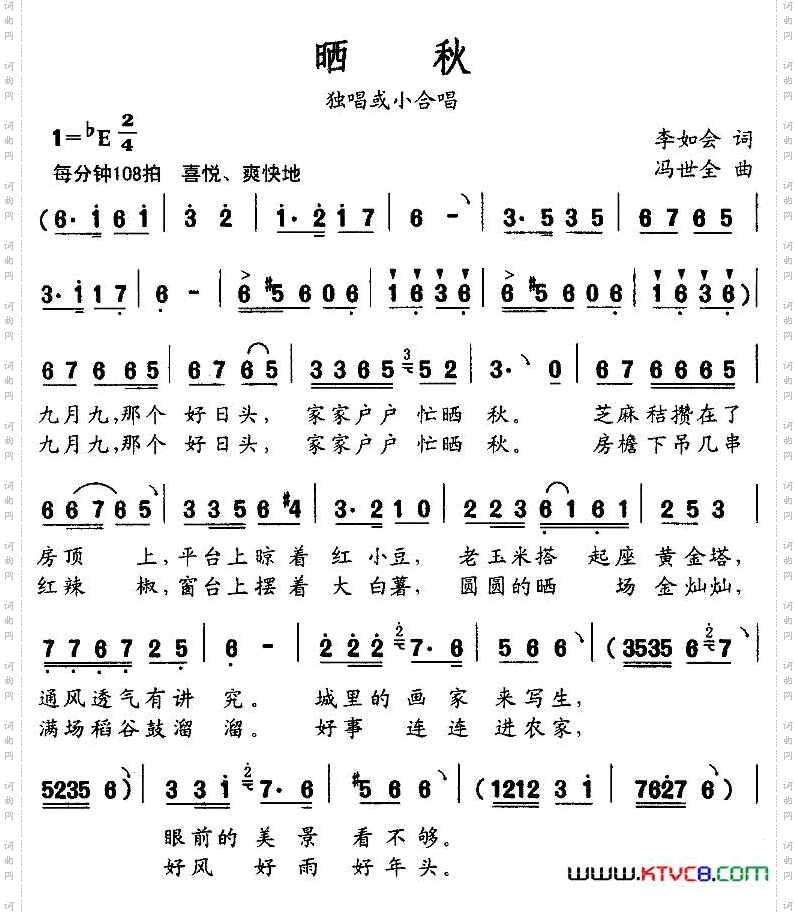 晒 秋
独唱或小合唱
1=♭E 2/4
李如会 词
每分钟108拍 喜悦、爽快地
冯世全 曲
(6·1 6 1 | 3 2 | 1·2 1 7 | 6 - | 3·5 3 5 | 6 7 6 5 |
3·1 1 7 | 6 - | 6 #5 6 0 6 | 1 6 3 6 | 6 #5 6 0 6 | 1 6 3 6) |
6 7 6 6 5 | 6 7 6 5 | 3 3 6 5 3 5 2 | 3· 0 | 6 7 6 6 6 5 |
九月九,那个 好日头, 家家户户 忙晒 秋。 芝麻秸攒在了
九月九,那个 好日头, 家家户户 忙晒 秋。 房檐下吊几串
6 6 7 6 5 | 3 3 5 6 #4 | 3·2 1 0 | 2 2 3 6 1 6 1 | 2 5 3 |
房顶 上,平台上晾着 红 小豆, 老玉米搭 起座 黄金塔,
红辣 椒,窗台上摆着 大 白薯, 圆圆的晒 场金灿灿,
7 7 6 7 2 5 | 6 - | 2 2 2 2 7·6 | 5 6 6 | (3535 6 2 7 |
通风透气有讲 究。 城里的 画家 来写生,
满场稻谷鼓溜 溜。 好事 连连 进农家,
5235 6) | 3 3 1 2 7·6 | #5 6 6 | (1212 3 1 | 7627 6) |
眼前的 美 景 看不够。
好风 好雨 好年头。
www.KTVC8.com
词曲网